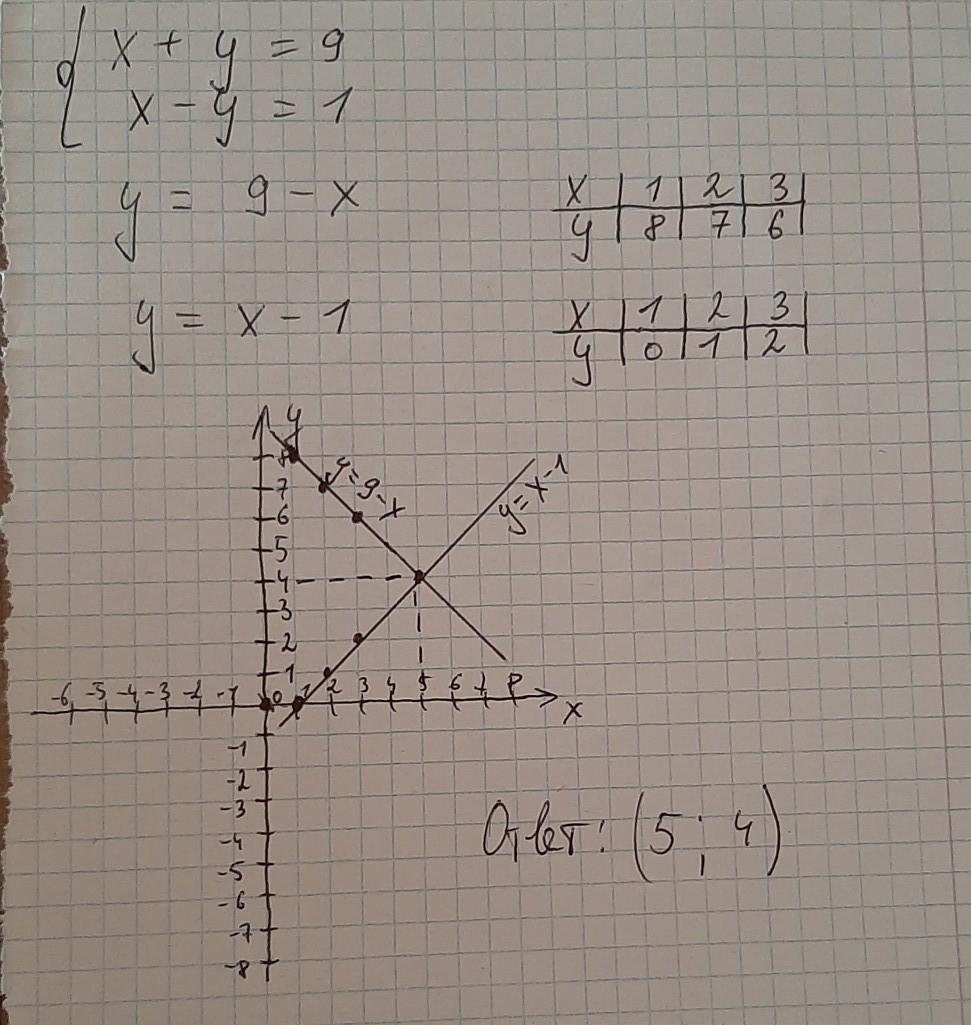 x + y = 9
x - y = 1
y = 9 - x
x | 1 | 2 | 3 |
y | 8 | 7 | 6 |
y = x - 1
x | 1 | 2 | 3 |
y | 0 | 1 | 2 |
y
8
7
6
5
4
3
2
1
y = 9 - x
y = x - 1
-6 -5 -4 -3 -2 -1 0 1 2 3 4 5 6 7 8
x
-1
-2
-3
-4
-5
-6
-7
-8
Ответ: (5; 4)